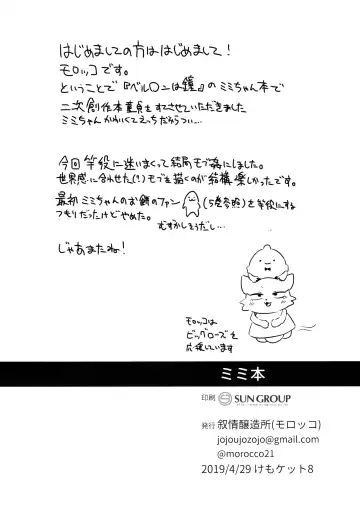 はじめましての方ははじめまして!
モロッコです。
ということで『ベルロンは鐘』のミミちゃん本で
二次創作本童貞をすてさせていただきました
ミミちゃんかわいくてえっちだからつい…
今回竿役に迷いまくって結局モブ姦にしました。
世界感に合わせた(?)モブを描くのが結構楽しかったです。
最初ミミちゃんのお餅のファン(5巻参照)を竿役にする
つもりだったけどやめた。
むずかしそうだし…
じゃあまたね!
モロッコは
ビッグローズを
応援しています
ミミ本
印刷 SUN GROUP
発行 叙情醸造所(モロッコ)
jojoujozojo@gmail.com
@morocco21
2019/4/29 けもケット8